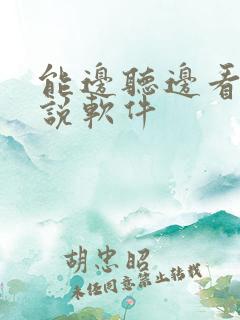 能邊聽邊看
說軟件
胡忠昭
未任同意禁止轉載